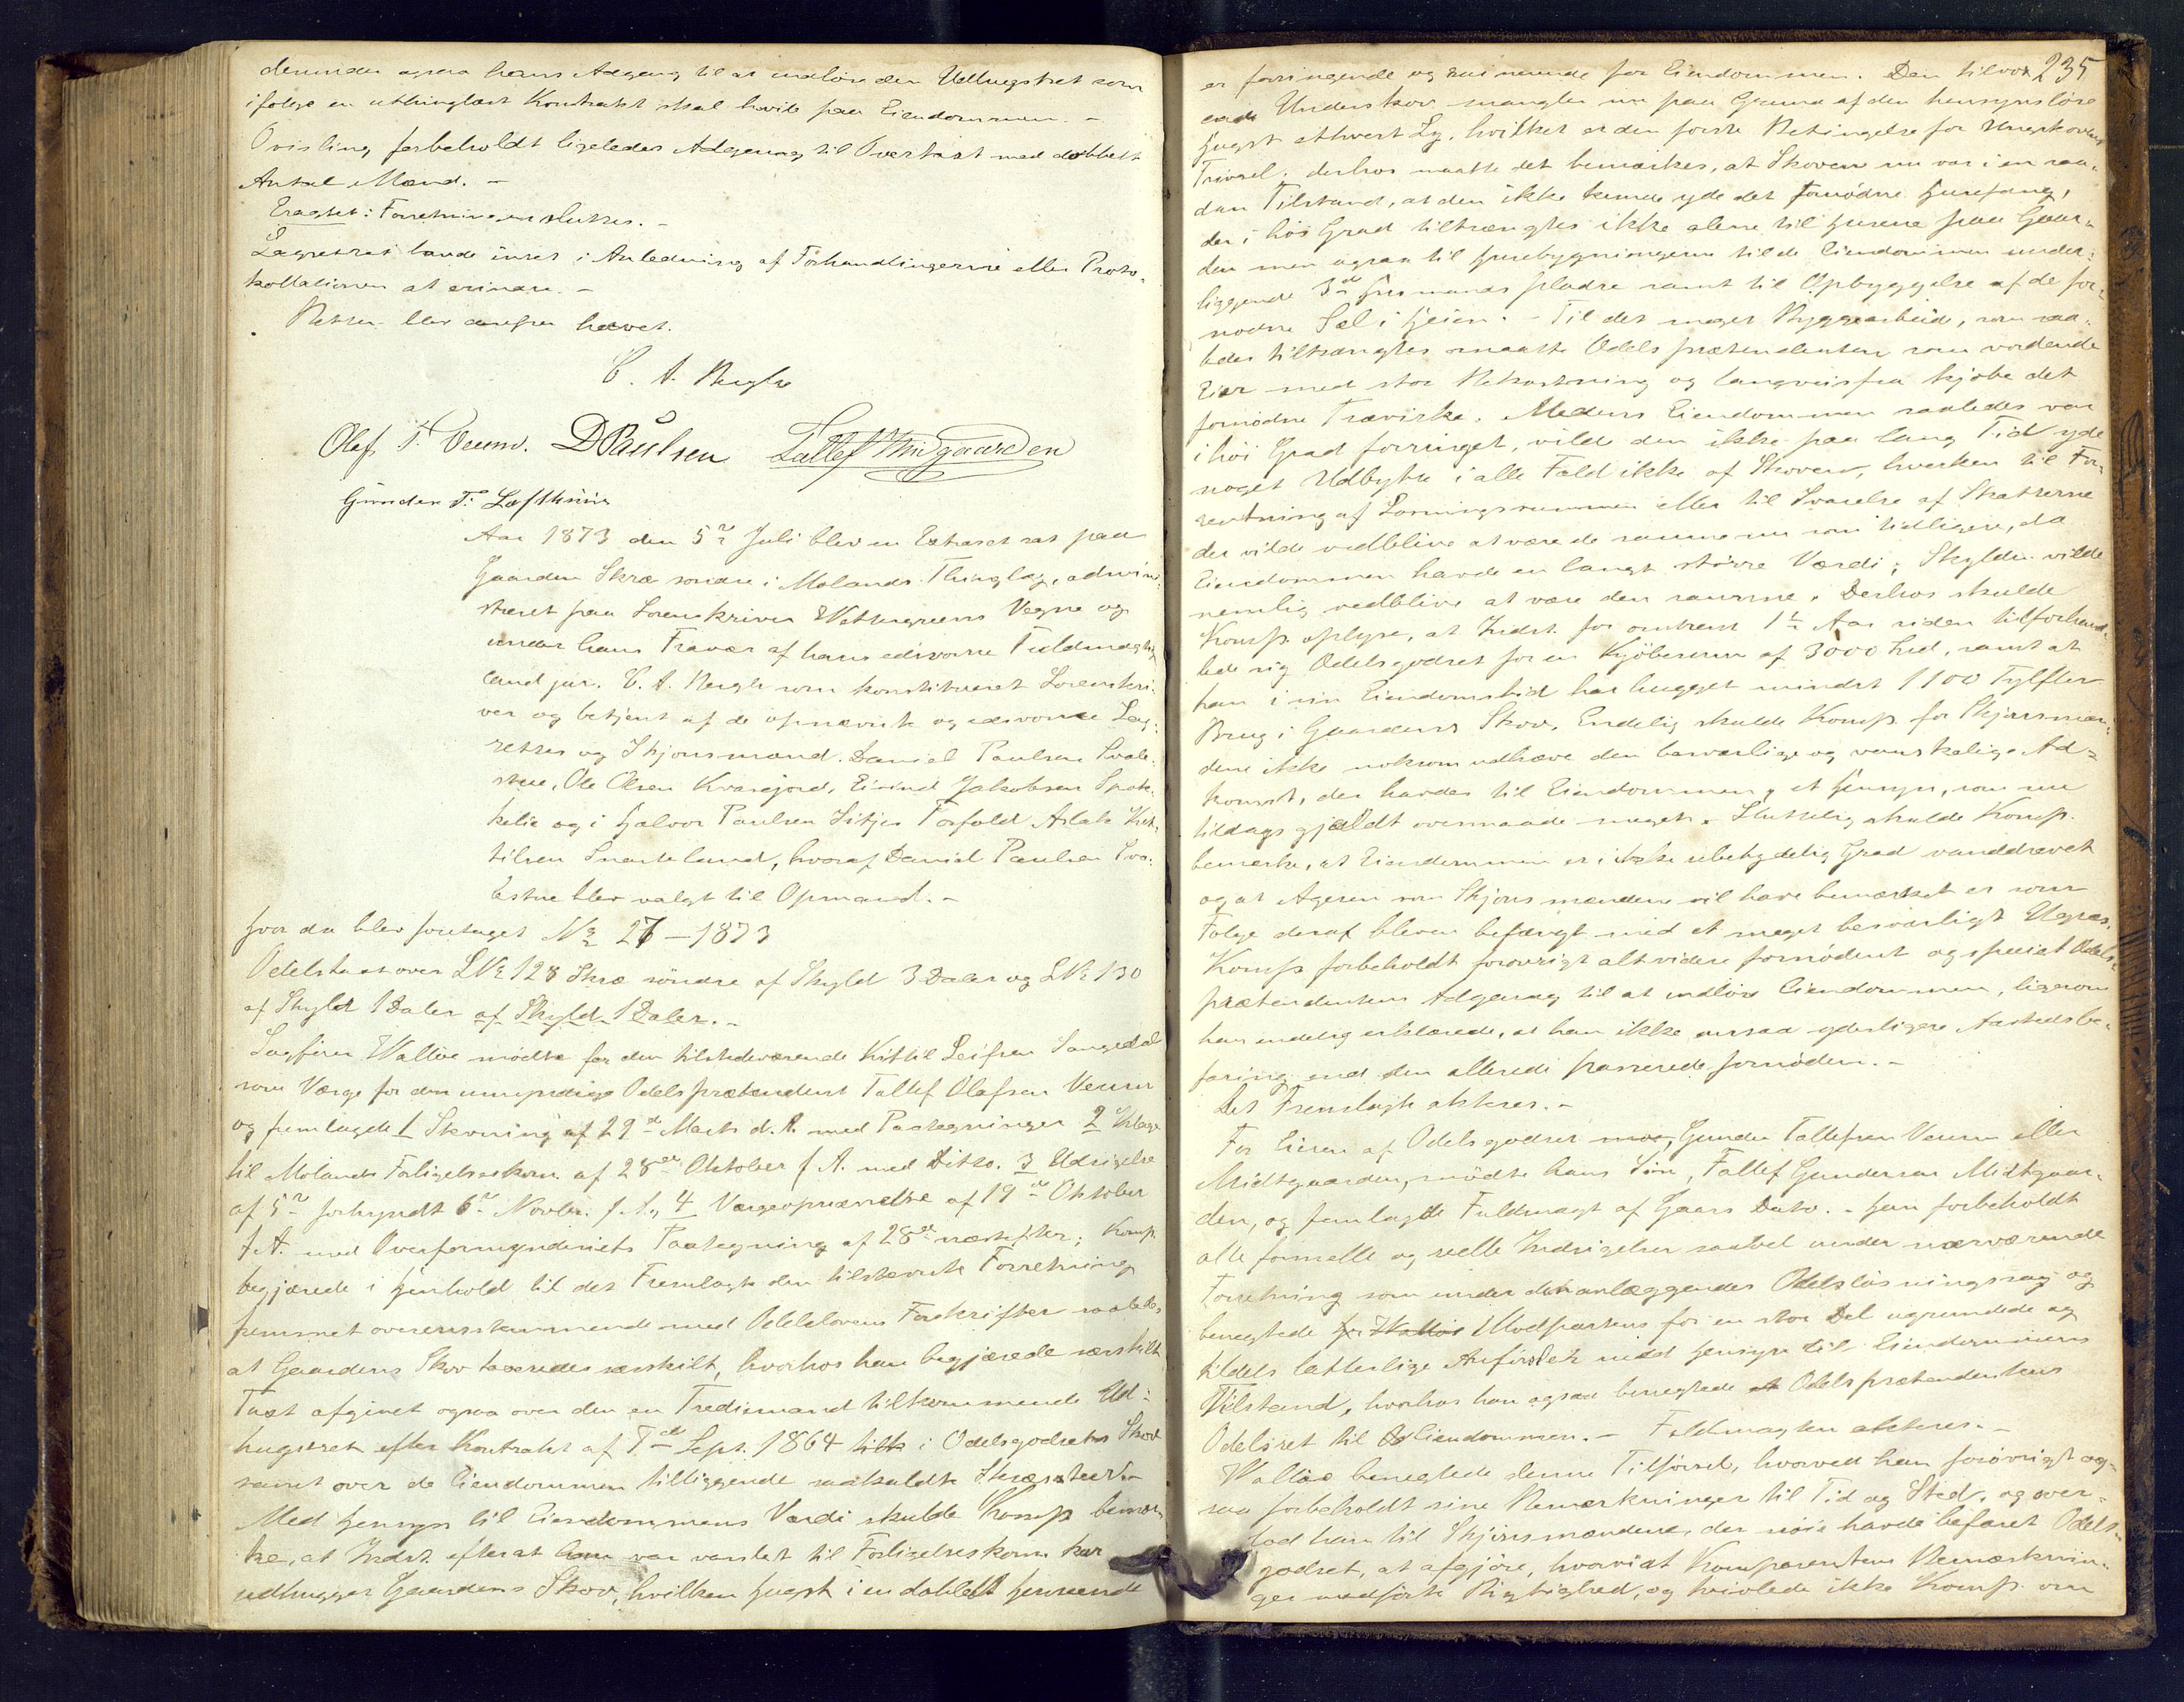 desuden ogsaa hans Adgang til at indløse den Udhugstret som
ifølge en uthinglæst Kontrakt skal hvile paa Eiendommen. -
Qvisling forbeholdt ligeledes Adgang til Overtaxt med dobbelt
Antal Mænd. -
Eragtet: Forretningen sluttes. -
Lagrettet havde intet i Anledning af Forhandlingerne eller Proto-
kollationen at erindre. -
Retten blev derefter hævet.
C. A. Bugge
Olaf T. Veum. DPaulsen Tallef Midgaarden
Gunder T. Lofthuus
Aar 1873 den 5te Juli blev en Extraret sat paa
Gaarden Skræ søndre i Molands Thinglag, admini-
streret paa Sorenskriver Wettergreens Vegne og
under hans Fravær af hans edsvorne Fuldmægtig
cand jur. C. A. Bugge som konstitueret Sorenskri-
ver og betjent af de opnævnte og edsvorne Lag-
rettes og Skjønsmænd. Daniel Paulsen Svale-
stue, Ole Olsen Kvasejord, Eivind Jakobsen
kelie og i Halvor Paulsen Sitjes Forfald Aslak Kit-
tilsen Snarteland, hvoraf Daniel Paulsen Sva-
lestue blev valgt til Opmand. -
Hvor da blev foretaget No 27 - 1873
Odelstaxt over LNo 128 Skræ søndre af Skyld 3 Daler og LNo 130
af Skyld 1 Daler af Skyld 1 Daler. -
Sagfører Walløe mødte for den tilstedeværende Kittil Leifsen Saugedal
som Værge for den umyndige Odelsprætendent Tallef Olafsen Veum
og fremlagde 1 Stevning af 29de Marts d.A. med Paategninger 2 Klage
til Molands Forligelseskom. af 28de Oktober f.A. med Ditto. 3 Udsigelse
af 5te forkyndt 6te Novbr. f.A., 4 Værgeopnævnelse af 19de Oktober
f.A. med Overformynderiets Paategning af 28de næstefter; Komp.
begjærede i Henhold til det Fremlagte den tilstevnte Forretning
fremmet overensstemmende med Odelslovens Forskrifter saaledes
at Gaardens Skov taxeredes særskilt, hvorhos han begjærede særskilt
Taxt afgivet ogsaa over den en Trediemand tilkommende Ud-
hugstret efter Kontrakt af 7de Sept. 1864 i Odelsgodsets Skov
samt over de Eiendommen tilliggende saakaldte
Med Hensyn til Eiendommens Værdi skulde Komp. bemær-
ke, at Indst. efterat han var varslet til Forligelseskom. har
udhugget Gaardens Skov, hvilken Hugst i en dobbelt Henseende
235
er forringende og ruinerende for Eiendommen. Den tilvox-
ende Underskov mangler nu paa Grund af den hensynsløse
Hugst ethvert Ly, hvilket er den første Betingelse for Ungskovens
Trivsel; derhos maatte det bemærkes, at Skoven nu var i en saa-
dan Tilstand, at den ikke kunde yde det fornødne Husefang,
der i høi Grad tiltrængtes ikke alene til Husene paa Gaar-
den men ogsaa til Husebygningerne til de Eiendommen under-
liggende 3de Husmands pladse samt til Opbyggelse af de for-
nødne Sæl i Heien. - Til det meget Byggearbeide, som saa-
ledes tiltrængtes maatte Odelsprætendenten som vordende
Eier med stor Bekostning og langveisfra kjøbe det
fornødne Trævirke. Medens Eiendommen saaledes var
i høi Grad forringet, vilde den ikke paa lang Tid yde
noget Udbytte i alle Fald ikke af Skoven, hverken til For-
rentning af Løsningssummen eller til Svarelse af Skatterne
der vilde vedblive at være de samme nu som tidligere, da
Eiendommen havde en langt større Værdi; Skylden vilde
nemlig vedblive at være den samme. Derhos skulde
Komp. oplyse, at Indst. for omtrent 1½ Aar siden tilforhand-
lede sig Odelsgodset for en Kjøbesum af 3000 Spd, samt at
han i sin Eiendomstid har hugget mindst 1100 Tylfter
Brug i Gaardens Skov. Endelig skulde Komp. for Skjønsmæn-
dene ikke noksom udhæve den besværlige og vanskelige Ad-
komst, der havdes til Eiendommen, et Hensyn, som nu
tildags gjældt overmaade meget. Sluttelig skulde Komp.
bemærke, at Eiendommen er i ikke ubetydelig Grad vanddrevet
og at Ageren som Skjønsmændene vil have bemærket er som
Følge deraf bleven befængt med et meget besværligt Ugræs.
Komp. forbeholdt forøvrigt alt videre fornødent og specielt Odels-
prætendentens Adgang til at indløse Eiendommen, ligesom
han endelig erklærede, at han ikke ansaa yderligere Aastedsbe-
faring end den allerede passerede fornøden. -
Det Fremlagte akteres. -
For Eieren af Odelsgodset Gunder Tallefsen Veum eller
Midtgaarden, mødte hans Søn, Tallef Gundersen Midtgaar-
den, og fremlagde Fuldmagt af Gaars Dato. - Han forbeholdt
alle formelle og reelle Indsigelser saavel under nærværende
Forretning som under den anlæggendes Odelsløsningssag og
benegtede Modpartens for en stor Del ugrundede og
tildels latterlige Anførsler med Hensyn til Eiendommens
Tilstand, hvorhos han ogsaa benegtede Odelsprætendentens
Odelsret til Eiendommen. - Fuldmagten akteres. -
Walløe benegtede denne Tilførsel, hvorved han forøvrigt og-
saa forbeholdt sine Bemærkninger til Tid og Sted, og over-
lod han til Skjønsmændene, der nøie havde befaret Odels-
godset, at afgjøre, hvorvidt Komparentens Bemærknin-
ger medførte Rigtighed, og tvivlede ikke Komp. om